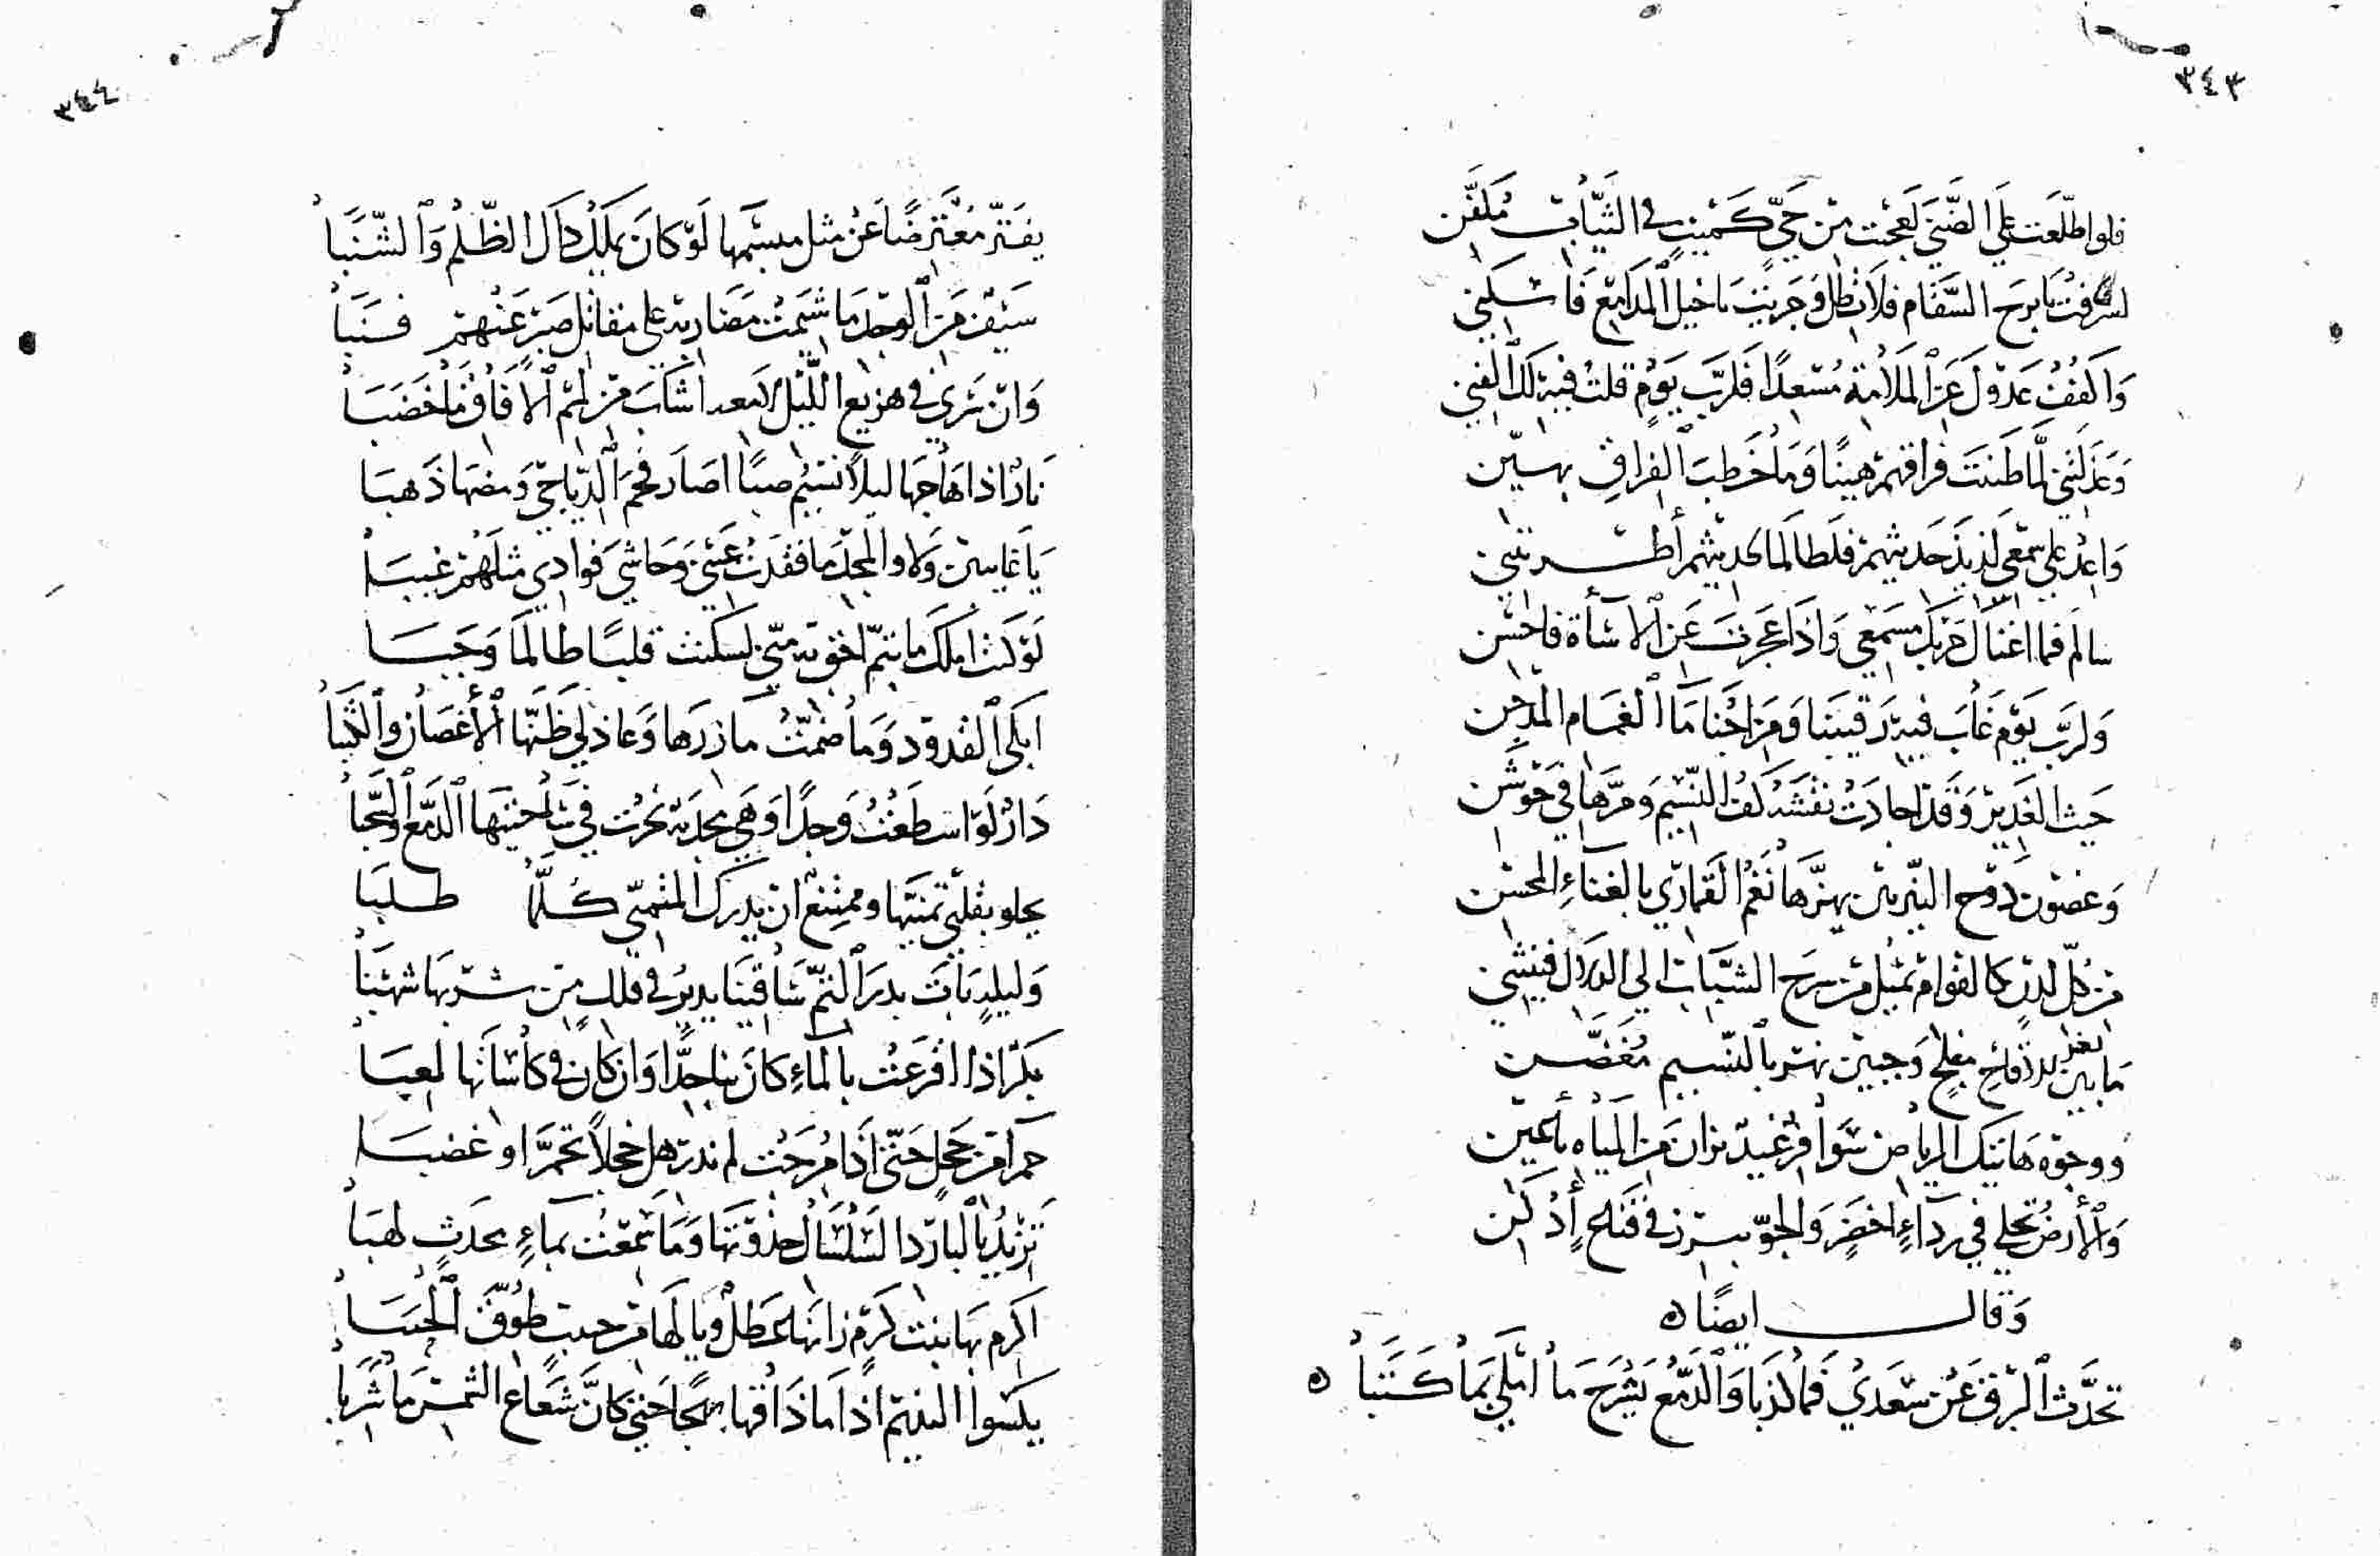 ٣٤٣
فلو اطّلعت على الضّنى لعجبت من حيّ كميت في الثياب مكفّن
يا برح السقام فلا تطل وجريت يا خيل المدامع
واكفف عذولي عن الملامة مسعدا فلربّ يوم قلت فيه لك
وعذلتني لمّا ظننت فراقهم هينًا وما خطب الفراق بهيّن
واعد على سمعي لذيذ حديثهم فلطالما لحديثهم أطربتني
مسمعي واذا عجزت عن الاساة فاحسن
ولربّ يوم غاب فيه رقيبنا ومزاجنا ماء الغمام المدجن
حيث الغدير وقد اجادت نقشه كف النسيم ومرّها في جوشن
وغصون دوح النيربين يهزّها نغم القماري بالغناء المحسن
من كلّ لدن كالقوام تميل من مرح الشباب الى الدلال فينثني
ما بين ثغر للاقاح مفلج وجبين نهر بالنسيم مغضّن
ووجوه هاتيك الرياض سوافر غيد تزان من المياه باعين
والأرض تجلي في رداء اخضر والجوّ يبرز في قناع أدكن
وقال ايضًا ه
تحدّث البرق عن سعدي فما كذبا والدمع يشرح ما املي بما كتبا ه
٣٤٤
يفترّ معترضًا عن مثل مبسمها لو كان يملك ذاك الظلم والشنبا
سيف من الوجد ما شيمت مضاربه على مقاتل صبر عنهم فنبا
وان سرى في هزيع الليل لامعه اشاب من لمم الآفاق ما خضبا
نار اذا هاجها ليلا نسيم صبًا اصار فحم الدياجي ومضها ذهبا
يا غايبين ولا والمجد ما فقدت عيني وحاشى فوادي مثلهم غيبا
لو كنت املك ما بنتم اخوته منّي لسكنت قلبًا طالما وجبا
ابكي القدود وما ضمت مآزرها وعاذلي ظنها الأغصان والكثبا
دار لو اسطعت وجدا وهي مجدبة نحرت في ساحتيها الدمع والسحبا
يحلو بقلبي تمنيها وممتنع ان يدرك المتمنّي كلّما طلبا
وليلة بات بدر التمّ ساقينا يدير في فلك من شربها شهبا
بكر اذا اقرعت بالماء كان بنا جدّا وان كان في كاساتها لعبا
حمرا من خجل حتى اذا مزجت لم ندر هل خجلا تحمرّ او غضبا
تزيد بالبارد السلسال جذوتها وما سمعت بماء محدث لهبا
اكرم بها بنت كرم زانها عطل ويا لها من حبب طوّق الحببا
يكسوا النديم اذا ما ذاقها حتى كانّ شعاع الشمس ما شربا